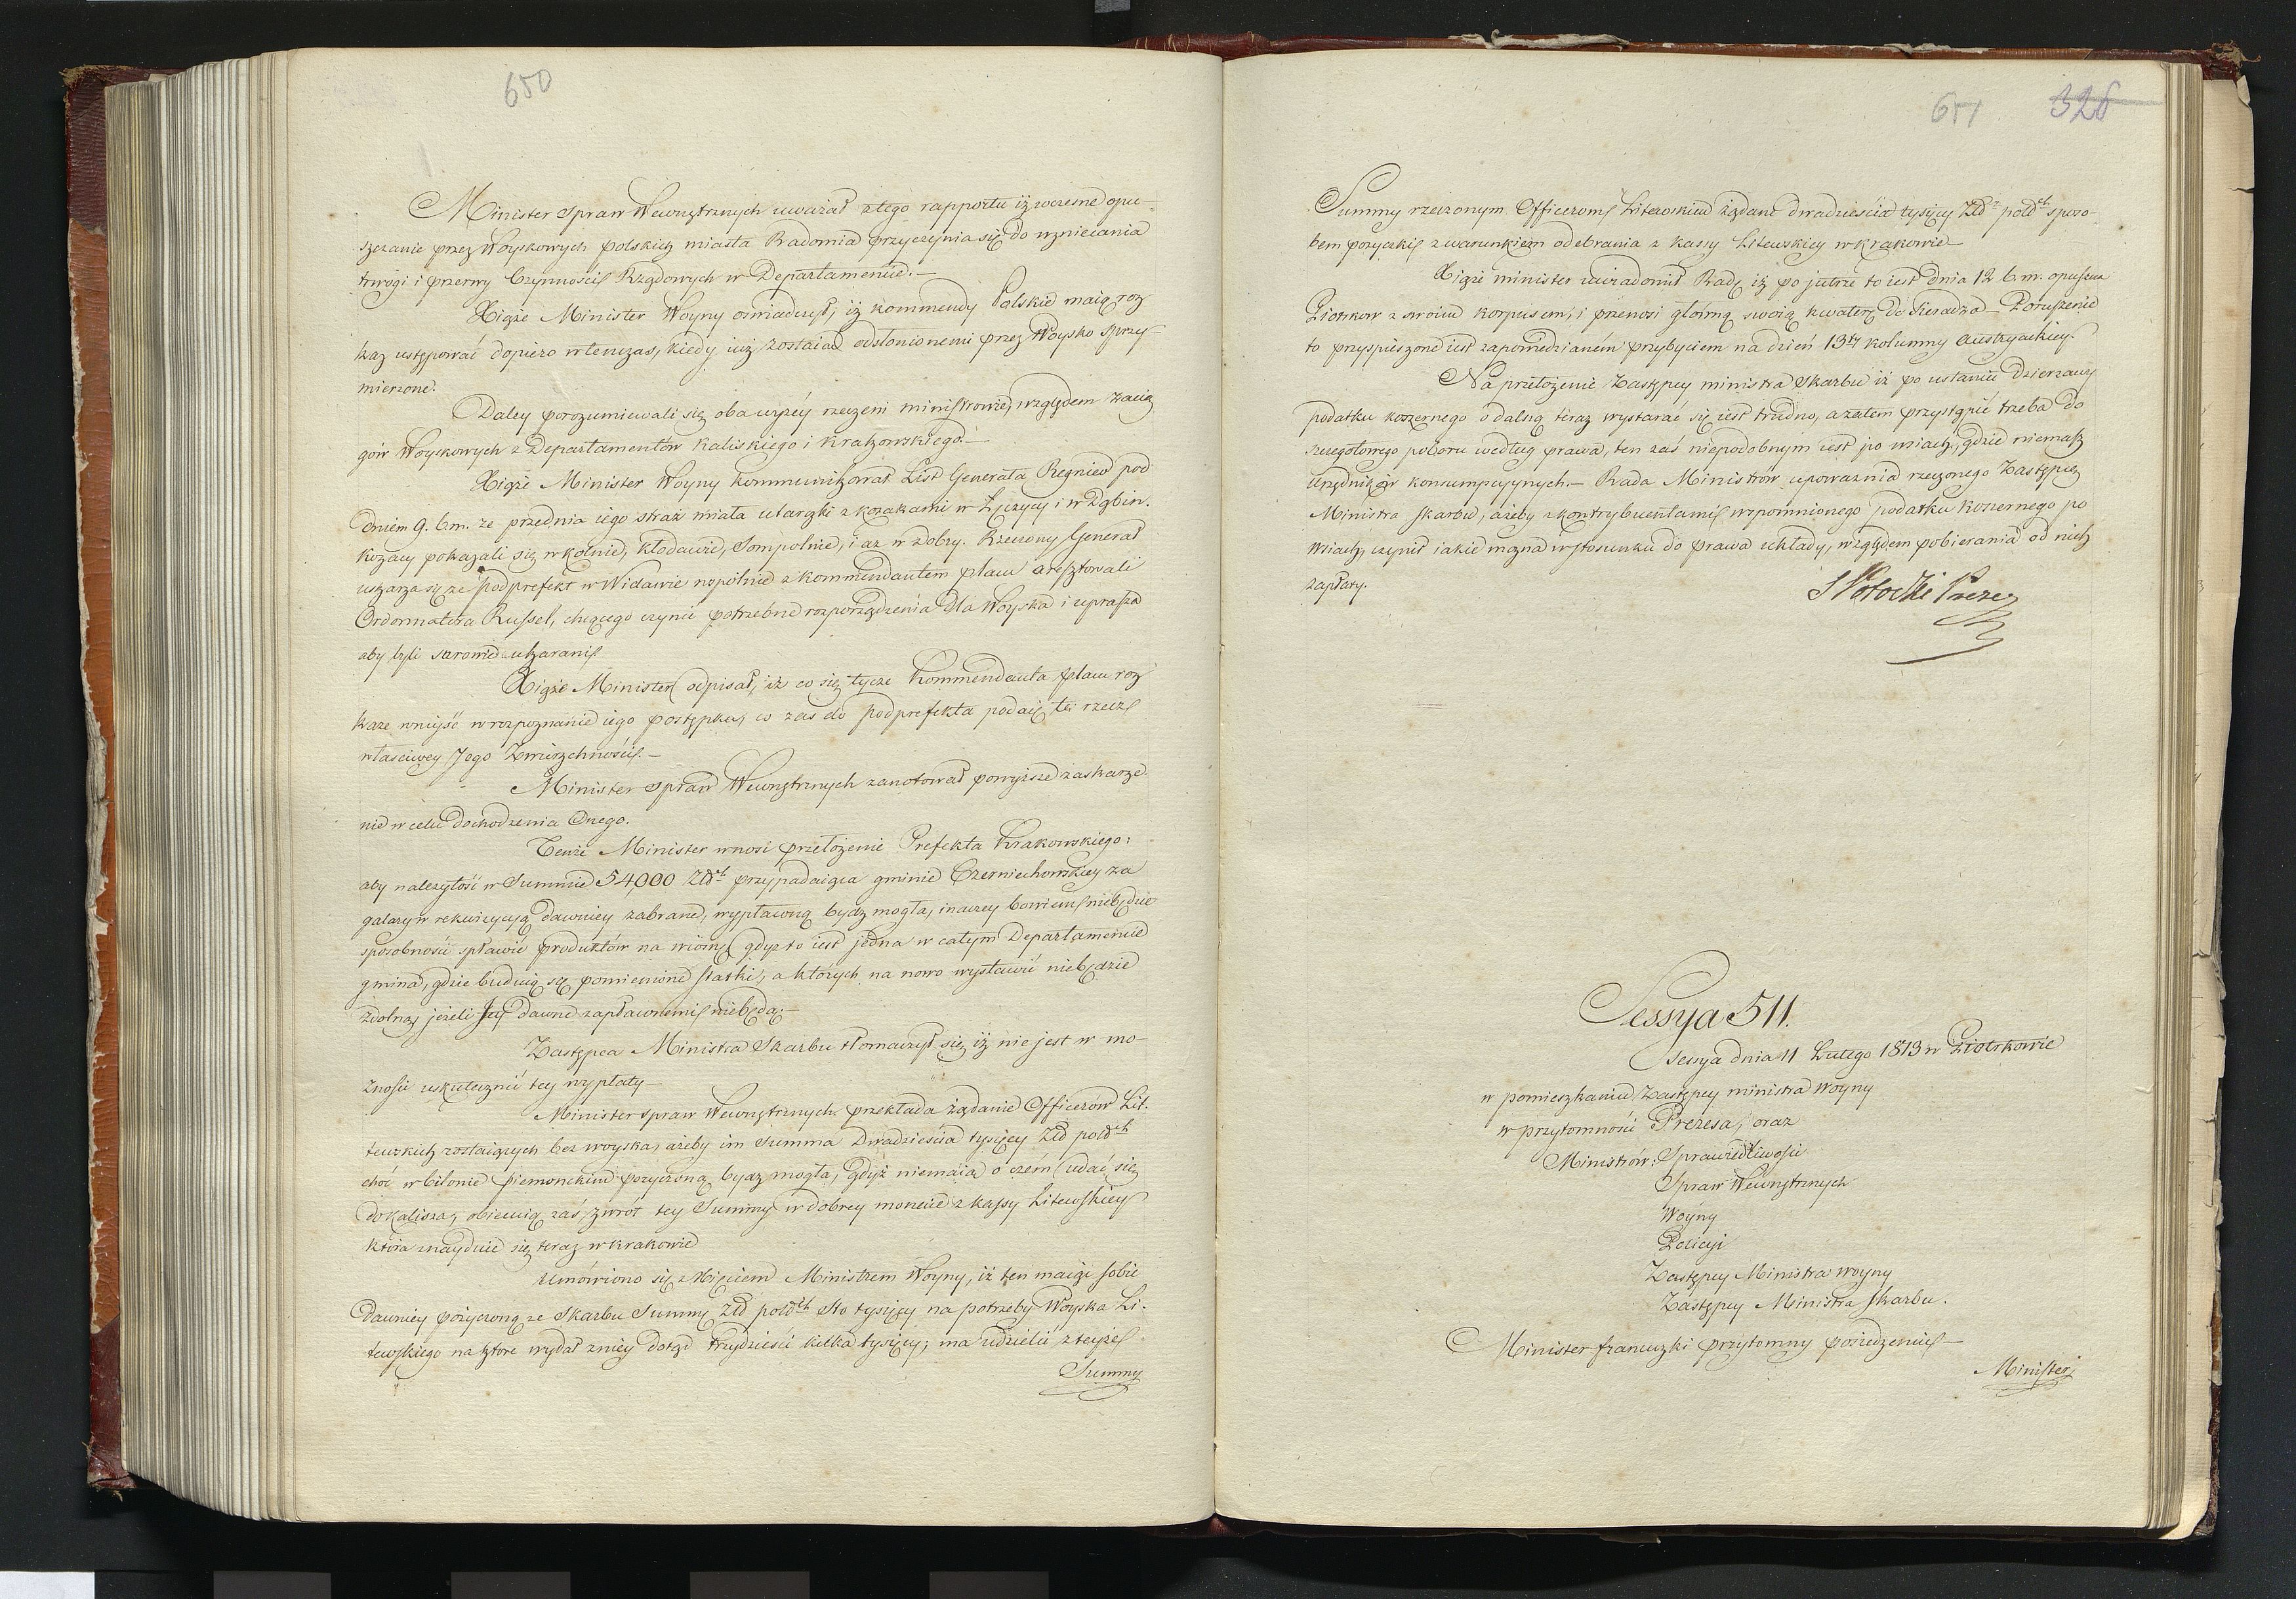 650
Minister Spraw Wewnętrznych uważał z tego rapportu iż wczesne opu-
szczanie przez Woyskowych polskich miasta Radomia przyczynia się do wzniecania
trwogi i przerwy Czynności Rządowych w Departamencie.—
Xiąże Minister Woyny oświadczył, iż kommendy Polskie maią roz
kaz ustępować dopiero wtenczas, kiedy iuż zostaią odsłonionemi przez Woysko sprzy-
mierzone.
Daley porozumiewali się oba wyżey rzeczeni ministrowie względem zacią
gów Woyskowych z Departamentów Kaliskiego i Krakowskiego.—
Xiąże Minister Woyny kommunikował List Generała Regnier pod
dniem 9. b.m. że przednia iego straż miała utarczki z kozakami w Łęczycy i w Dąbiu.
Kozacy pokazali się w Kolnie, Kłodawie, Sompolnie, i aż w Dobry. Rzeczony Generał
uskarza się że podprefekt w Widawie wspólnie z kommendantem placu aresztowali
Ordonnatora Russel, chcącego czynić potrzebne rozporządzenia dla Woyska i uprasza
aby byli surowie ukarani
Xiąże Minister odpisał, iż co się tycze Kommendanta placu roz
każe wniyść w rozpoznanie iego postępku, co zaś do podprefekta podaię tę rzecz
właściwey Jego Zwierzchności.—
Minister Spraw Wewnętrznych zanotował powyższe zaskarże
nie w celu dochodzenia Onego.
Tenże Minister wnosi przełożenie Prefekta Krakowskiego:
aby należytość w Summie 54,000 Złł przypadaiąca gminie Czerniechowskiey za
galary w rekwizycyą dawniey zabrane, wypłaconą bydz mogła, inaczey bowiem niebędzie
sposobności spławić produktów na wiosnę gdyż to iest jedna w całym Departamencie
gmina, gdzie buduią się pomienione statki, a których na nowo wystawić niebędzie
zdolną, jeżeli dawne zapłaconemi niebędą.—
Zastępca Ministra Skarbu tłomaczył się, iż nie jest w mo-
żności uskutecznić tey wypłaty—
Minister spraw Wewnętrznych przekłada żądanie Officerów Lit-
tewskich zostaiących bez woyska, ażeby im Summa Dwadzieścia tysięcy Złł polsch
choć w bilonie piemonckim pożyczoną bydz mogła, gdyż niemaią o czém udać się
do Kalisza, obiecuią zaś zwrot tey Summy w dobrey monecie z kassy Litewskiey
która znayduie się teraz w Krakowie
Umówiono się z Xięciem Ministrem Woyny, iż ten maiąc sobie
Dawniey pożyczoną ze Skarbu Summę Złł polsch Sto tysięcy na potrzeby Woyska Li-
tewskiego na które wydał z niey dotąd trzydzieści kilka tysięcy, ma udzielić z teyże
Summy
651 326
Summy rzeczonym Officerom Litewskim żądane dwadzieścia tysięcy Złł polsch sposo-
bem pożyczki z warunkiem odebrania z kassy Litewskiey w Krakowie—
Xiąże minister uwiadomił Radę iż po jutrze to iest dnia 12 b.m. opuszcza
Piotrkow z swoim korpusem, i przenosi główną swoią kwaterę do Sieradza— Poruszenie
to przyspieszone iest zapowiedzianém przybyciem na dzień 13ty kolumny Austryackiey.
Na przełożenie Zastępcy ministra Skarbu iż po ustaniu Dzierżawy
podatku koszernego o dalszą teraz wystarać się iest trudno, a zatem przystąpić trzeba do
szczegółowego poboru według prawa, ten zaś niepodobnym iest po wsiach, gdzie niemasz
Urzędników konsumpcyjnych.— Rada Ministrów upoważnia rzeczonego Zastępcę
Ministra Skarbu, ażeby z kontrybuentami wspomnionego podatku koszernego po
wsiach, czynił iakie można w stosunku do prawa układy, względem pobierania od nich
zapłaty.
S Potocki Prezes
Sessya 511.
Sessya dnia 11 Lutego 1813 w Piotrkowie
w pomieszkaniu Zastępcy ministra Woyny
w przytomności Prezesa, oraz
Ministrów: Sprawiedliwości
Spraw Wewnętrznych
Woyny
Policyi
Zastępcy Ministra Woyny
Zastępcy Ministra Skarbu.
Minister francuzki przytomny posiedzeniu—
Minister